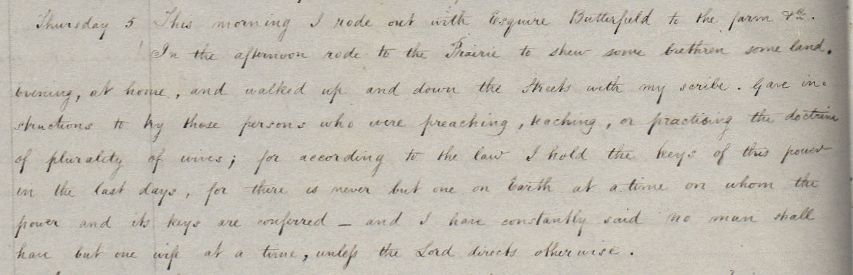 Thursday 5 This morning I rode out with Esquire Butterfield to the farm &c.
In the afternoon rode to the Prairie to shew some brethren some land.
Evening, at home, and walked up and down the Streets with my scribe. Gave in-
structions to try those persons who were preaching, teaching, or practicing the doctrine
of plurality of wives; for according to the law I hold the keys of this power
in the last days, for there is never but one on Earth at a time on whom the
power and its keys are conferred — and I have constantly said no man shall
have but one wife at a time, unless the Lord directs otherwise.